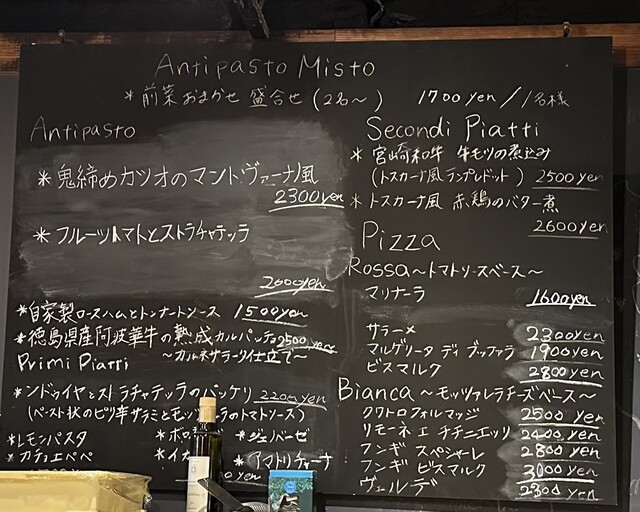 Antipasto Misto
*前菜おまかせ 盛合せ(2名〜) 1700yen/1名様
Antipasto
*鬼締めカツオのマントヴァーナ風
2300yen
*フルーツトマトとストラチャテッラ
2000yen
*自家製ロースハムとトンナートソース 1500yen
*徳島県産阿波華牛の熟成カルパッチョ 2500yen
〜カルネサラーダ仕立て〜
Primi Piatti
*ンドゥイヤとストラチャテッラのパッケリ 2200yen
(ペースト状のピリ辛サラミとモッツ ラのトマトソース)
*レモンパスタ *ボロ *ジェノベーゼ
*カチョエペペ *イカ *アマトリチャーナ
yen
Secondi Piatti
*宮崎和牛 牛モツの煮込み
(トスカーナ風ランプレドット) 2500yen
*トスカーナ風 赤鶏のバター煮
2600yen
Pizza
Rossa〜トマトソースベース〜
マリナーラ 1600yen
サラーメ 2300yen
マルゲリータ ディ ブッファラ 1900yen
ビスマルク 2800yen
Bianca〜モッツァレラチーズベース〜
クワトロフォルマッジ 2500yen
リモーネ エ チチニエッリ 2400yen
フンギ スペシャーレ 2800yen
フンギ ビスマルク 3000yen
ヴェルデ 2300yen